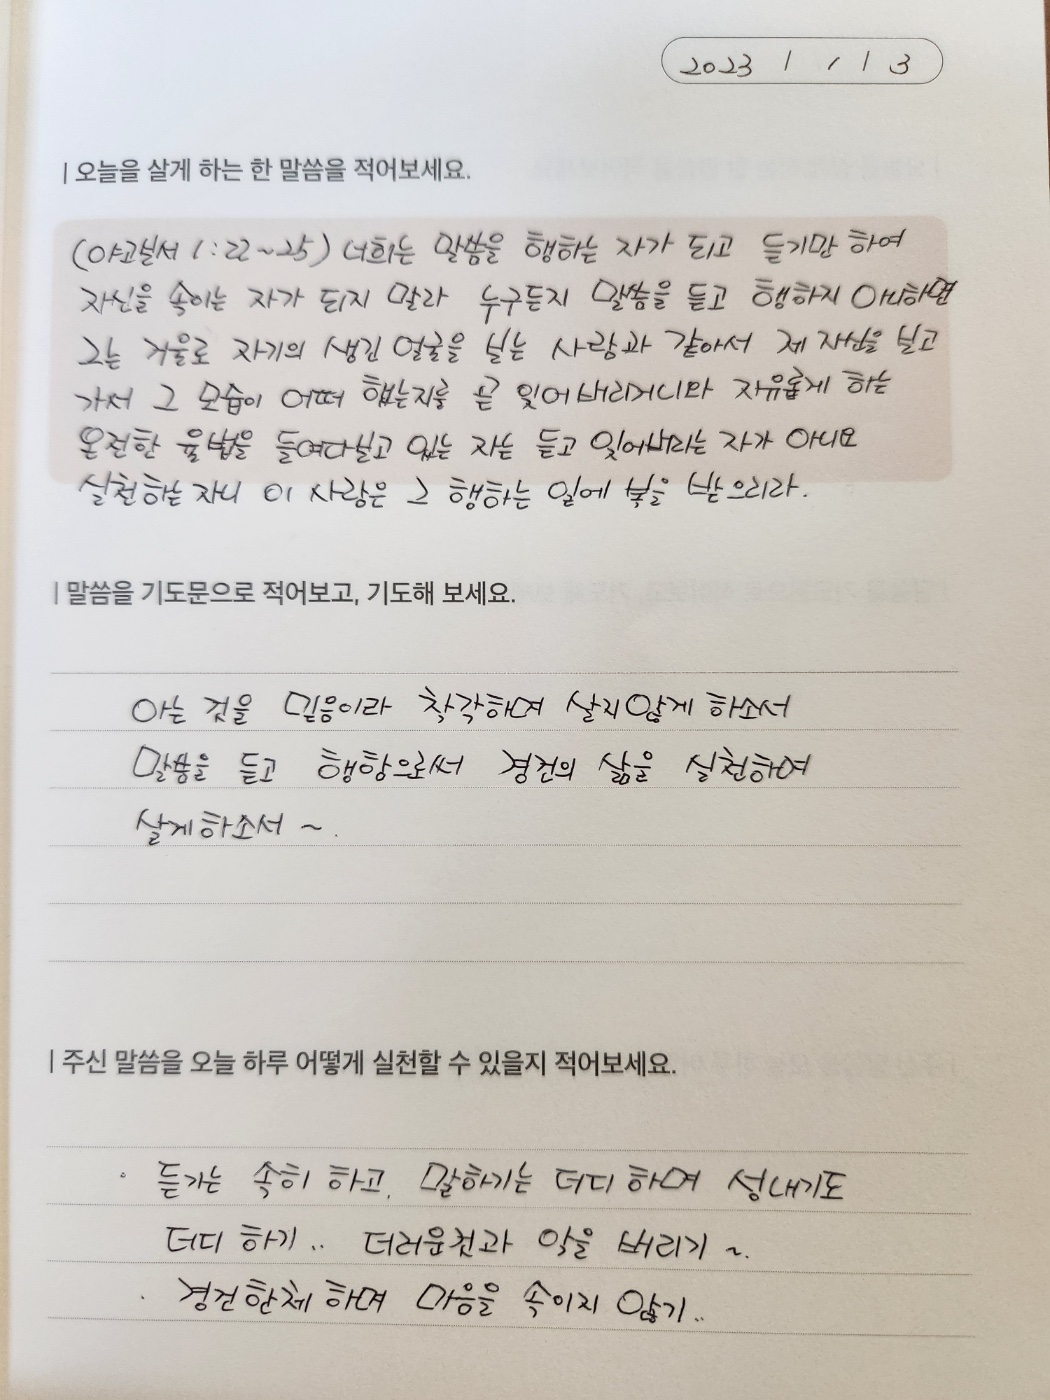 2023 / 1 / 13
| 오늘을 살게 하는 한 말씀을 적어보세요.
(야고보서 1:22~25) 너희는 말씀을 행하는 자가 되고 듣기만 하여
자신을 속이는 자가 되지 말라 누구든지 말씀을 듣고 행하지 아니하면
그는 거울로 자기의 생긴 얼굴을 보는 사람과 같아서 제 자신을 보고
가서 그 모습이 어떠 했는지를 곧 잊어버리거니와 자유롭게 하는
온전한 율법을 들여다보고 있는 자는 듣고 잊어버리는 자가 아니요
실천하는 자니 이 사람은 그 행하는 일에 복을 받으리라.
| 말씀을 기도문으로 적어보고, 기도해 보세요.
아는 것을 믿음이라 착각하며 살지않게 하소서
말씀을 듣고 행함으로써 경건의 삶을 실천하며
살게하소서 ~.
| 주신 말씀을 오늘 하루 어떻게 실천할 수 있을지 적어보세요.
· 듣기는 속히 하고, 말하기는 더디 하며 성내기도
더디 하기.. 더러운것과 악을 버리기 ~.
· 경건한체 하며 마음을 속이지 않기..